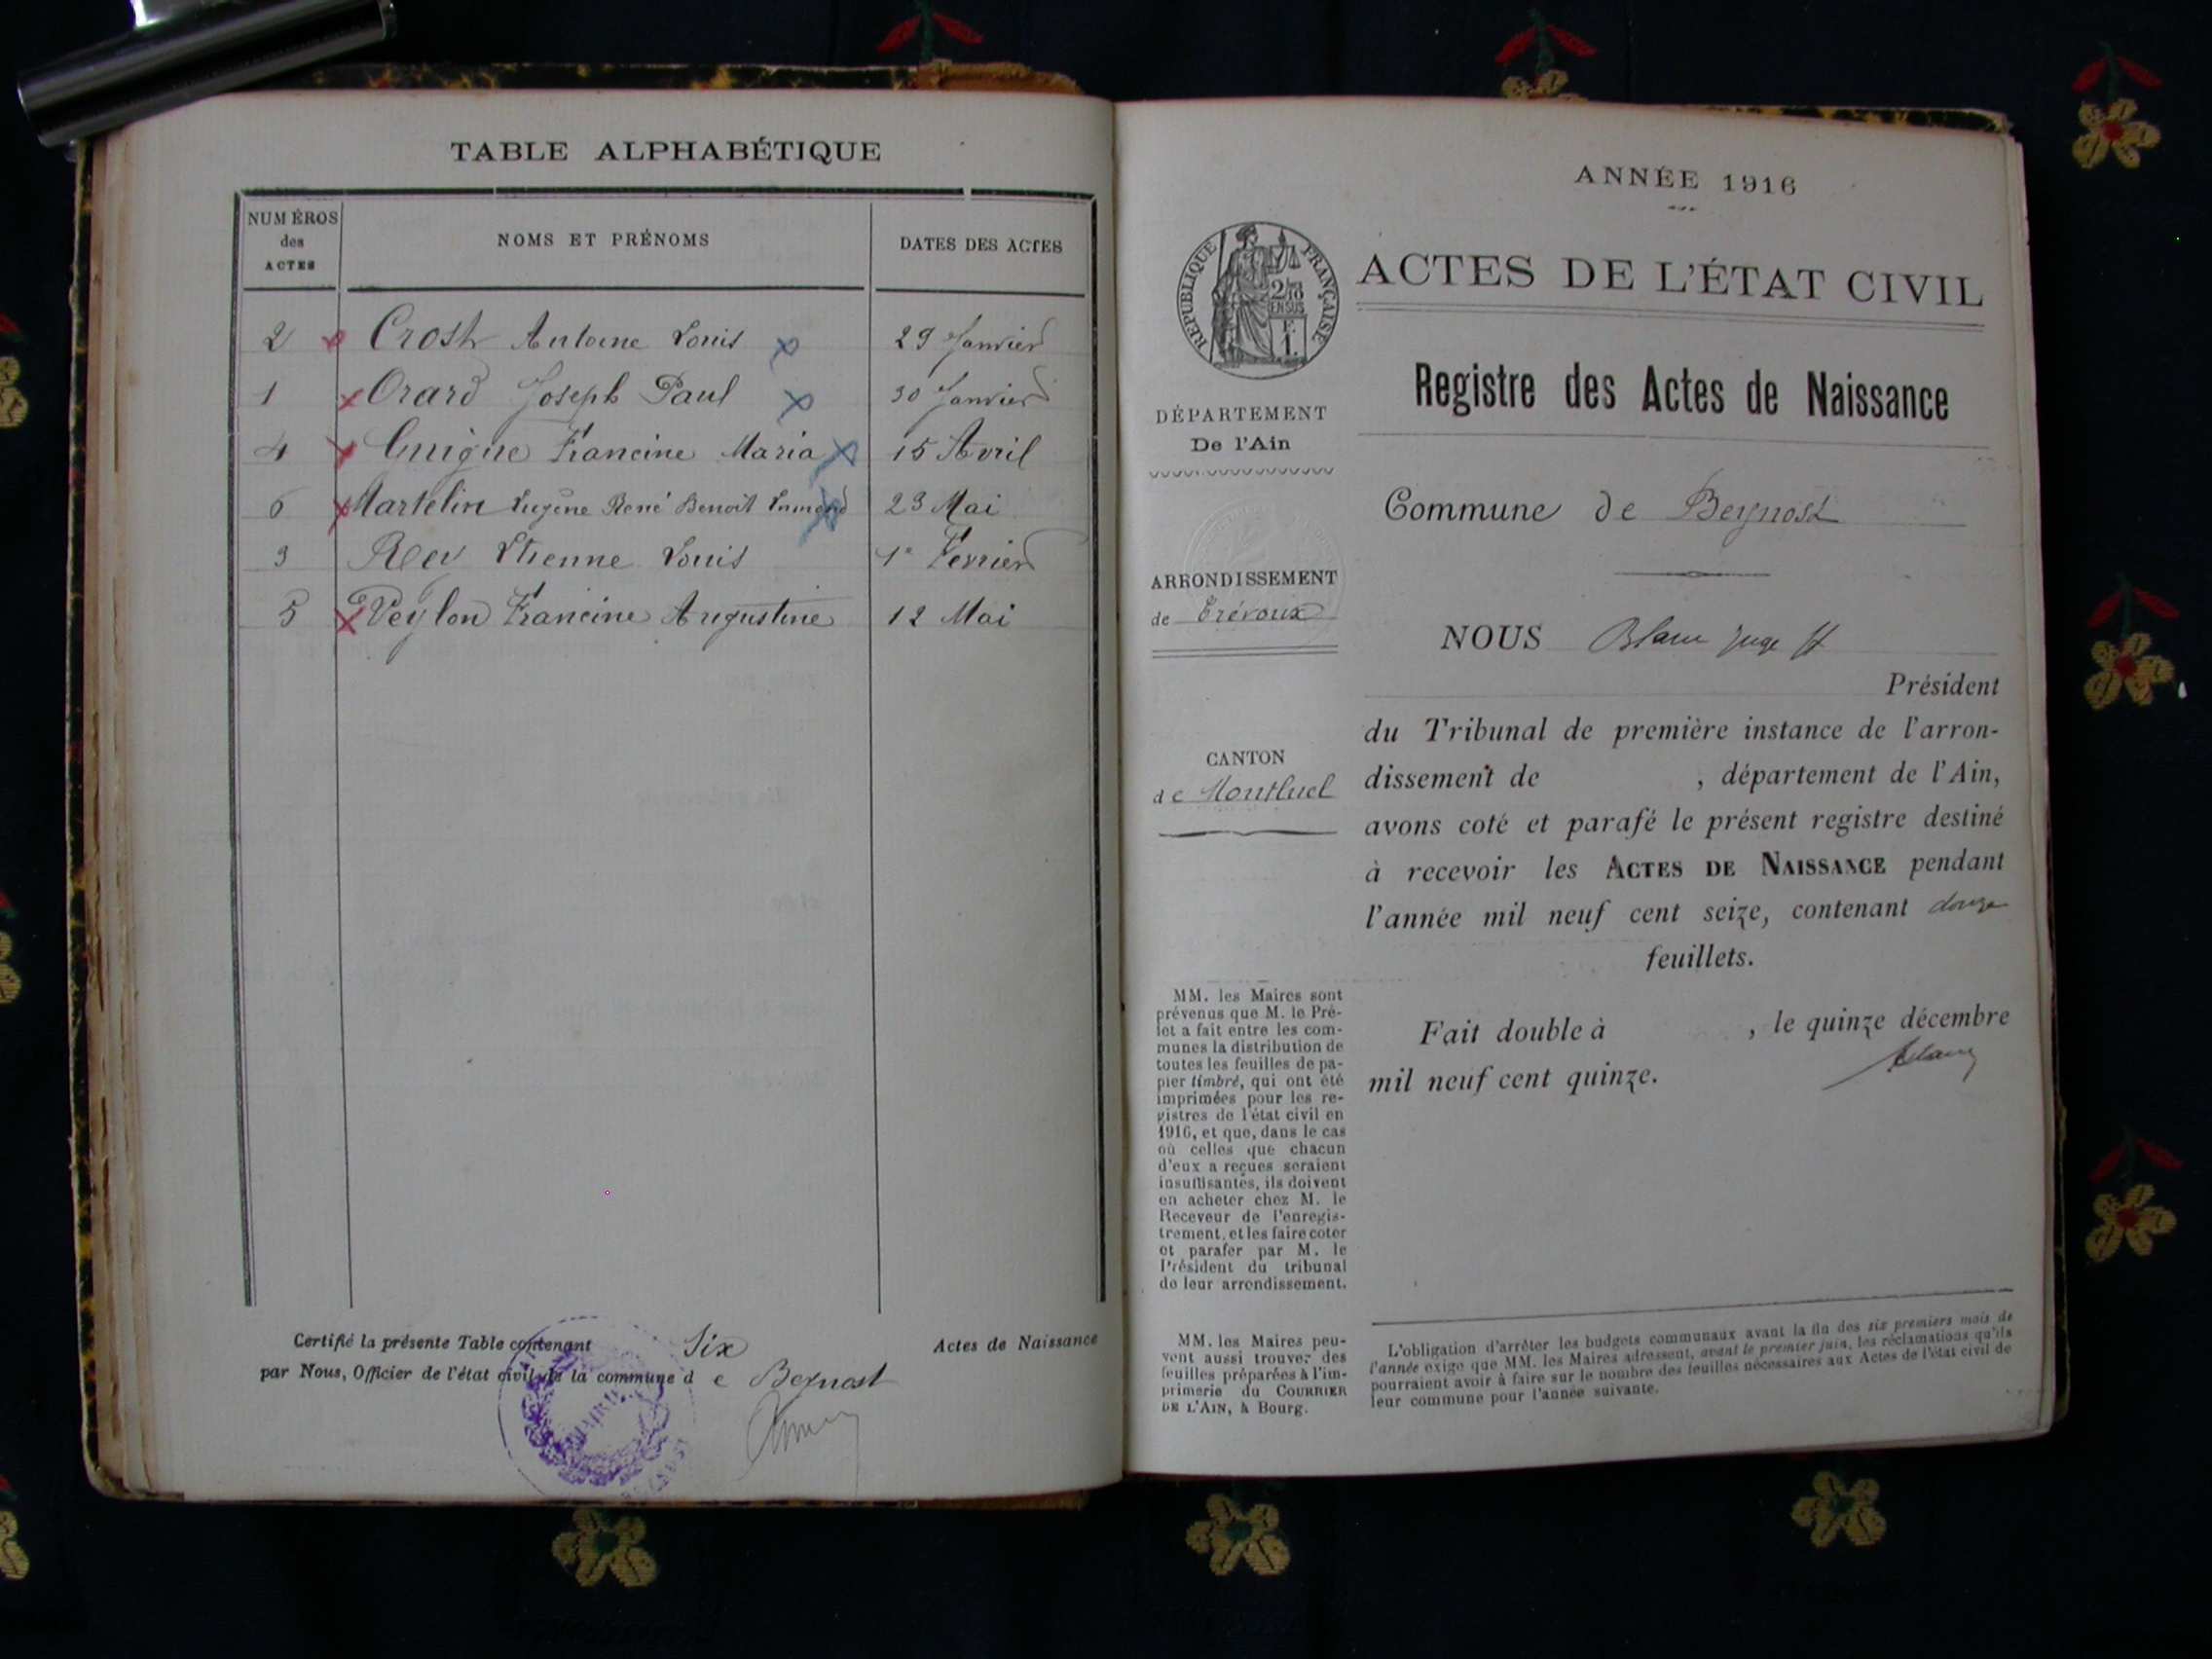 TABLE ALPHABÉTIQUE
NUMÉROS
des
ACTES
NOMS ET PRÉNOMS
DATES DES ACTES
2 Crost Antoine Louis 29 Janvier
1 Orard Joseph Paul 30 Janvier
4 Guigue Francine Maria 15 Avril
6 Martelin Eugène René Benoit 23 Mai
3 Rey Etienne Louis 1er Fevrier
5 Veylon Francine Augustine 12 Mai
Certifié la présente Table contenant Six Actes de Naissance
par Nous, Officier de l'état civil de la commune de Beynost
MAIRIE
ANNÉE 1916
RÉPUBLIQUE FRANÇAISE
2/10
EN SUS
F.
1.
ACTES DE L'ÉTAT CIVIL
Registre des Actes de Naissance
DÉPARTEMENT
De l'Ain
ARRONDISSEMENT
de Trévoux
CANTON
de Montluel
Commune de Beynost
NOUS Blanc juge
Président
du Tribunal de première instance de l'arron-
dissement de , département de l'Ain,
avons coté et parafé le présent registre destiné
à recevoir les ACTES DE NAISSANCE pendant
l'année mil neuf cent seize, contenant douze
feuillets.
Fait double à , le quinze décembre
mil neuf cent quinze.
Blanc
MM. les Maires sont
prévenus que M. le Pré-
fet a fait entre les com-
munes la distribution de
toutes les feuilles de pa-
pier timbré, qui ont été
imprimées pour les re-
gistres de l'état civil en
1916, et que, dans le cas
où celles que chacun
d'eux a reçues seraient
insuffisantes, ils doivent
en acheter chez M. le
Receveur de l'enregis-
trement, et les faire coter
et parafer par M. le
Président du tribunal
de leur arrondissement.
MM. les Maires peu-
vent aussi trouver des
feuilles préparées à l'im-
primerie du COURRIER
DE L'AIN, à Bourg.
L'obligation d'arrêter les budgets communaux avant la fin des six premiers mois de
l'année exige que MM. les Maires adressent, avant le premier juin, les réclamations qu'ils
pourraient avoir à faire sur le nombre des feuilles nécessaires aux Actes de l'état civil de
leur commune pour l'année suivante.